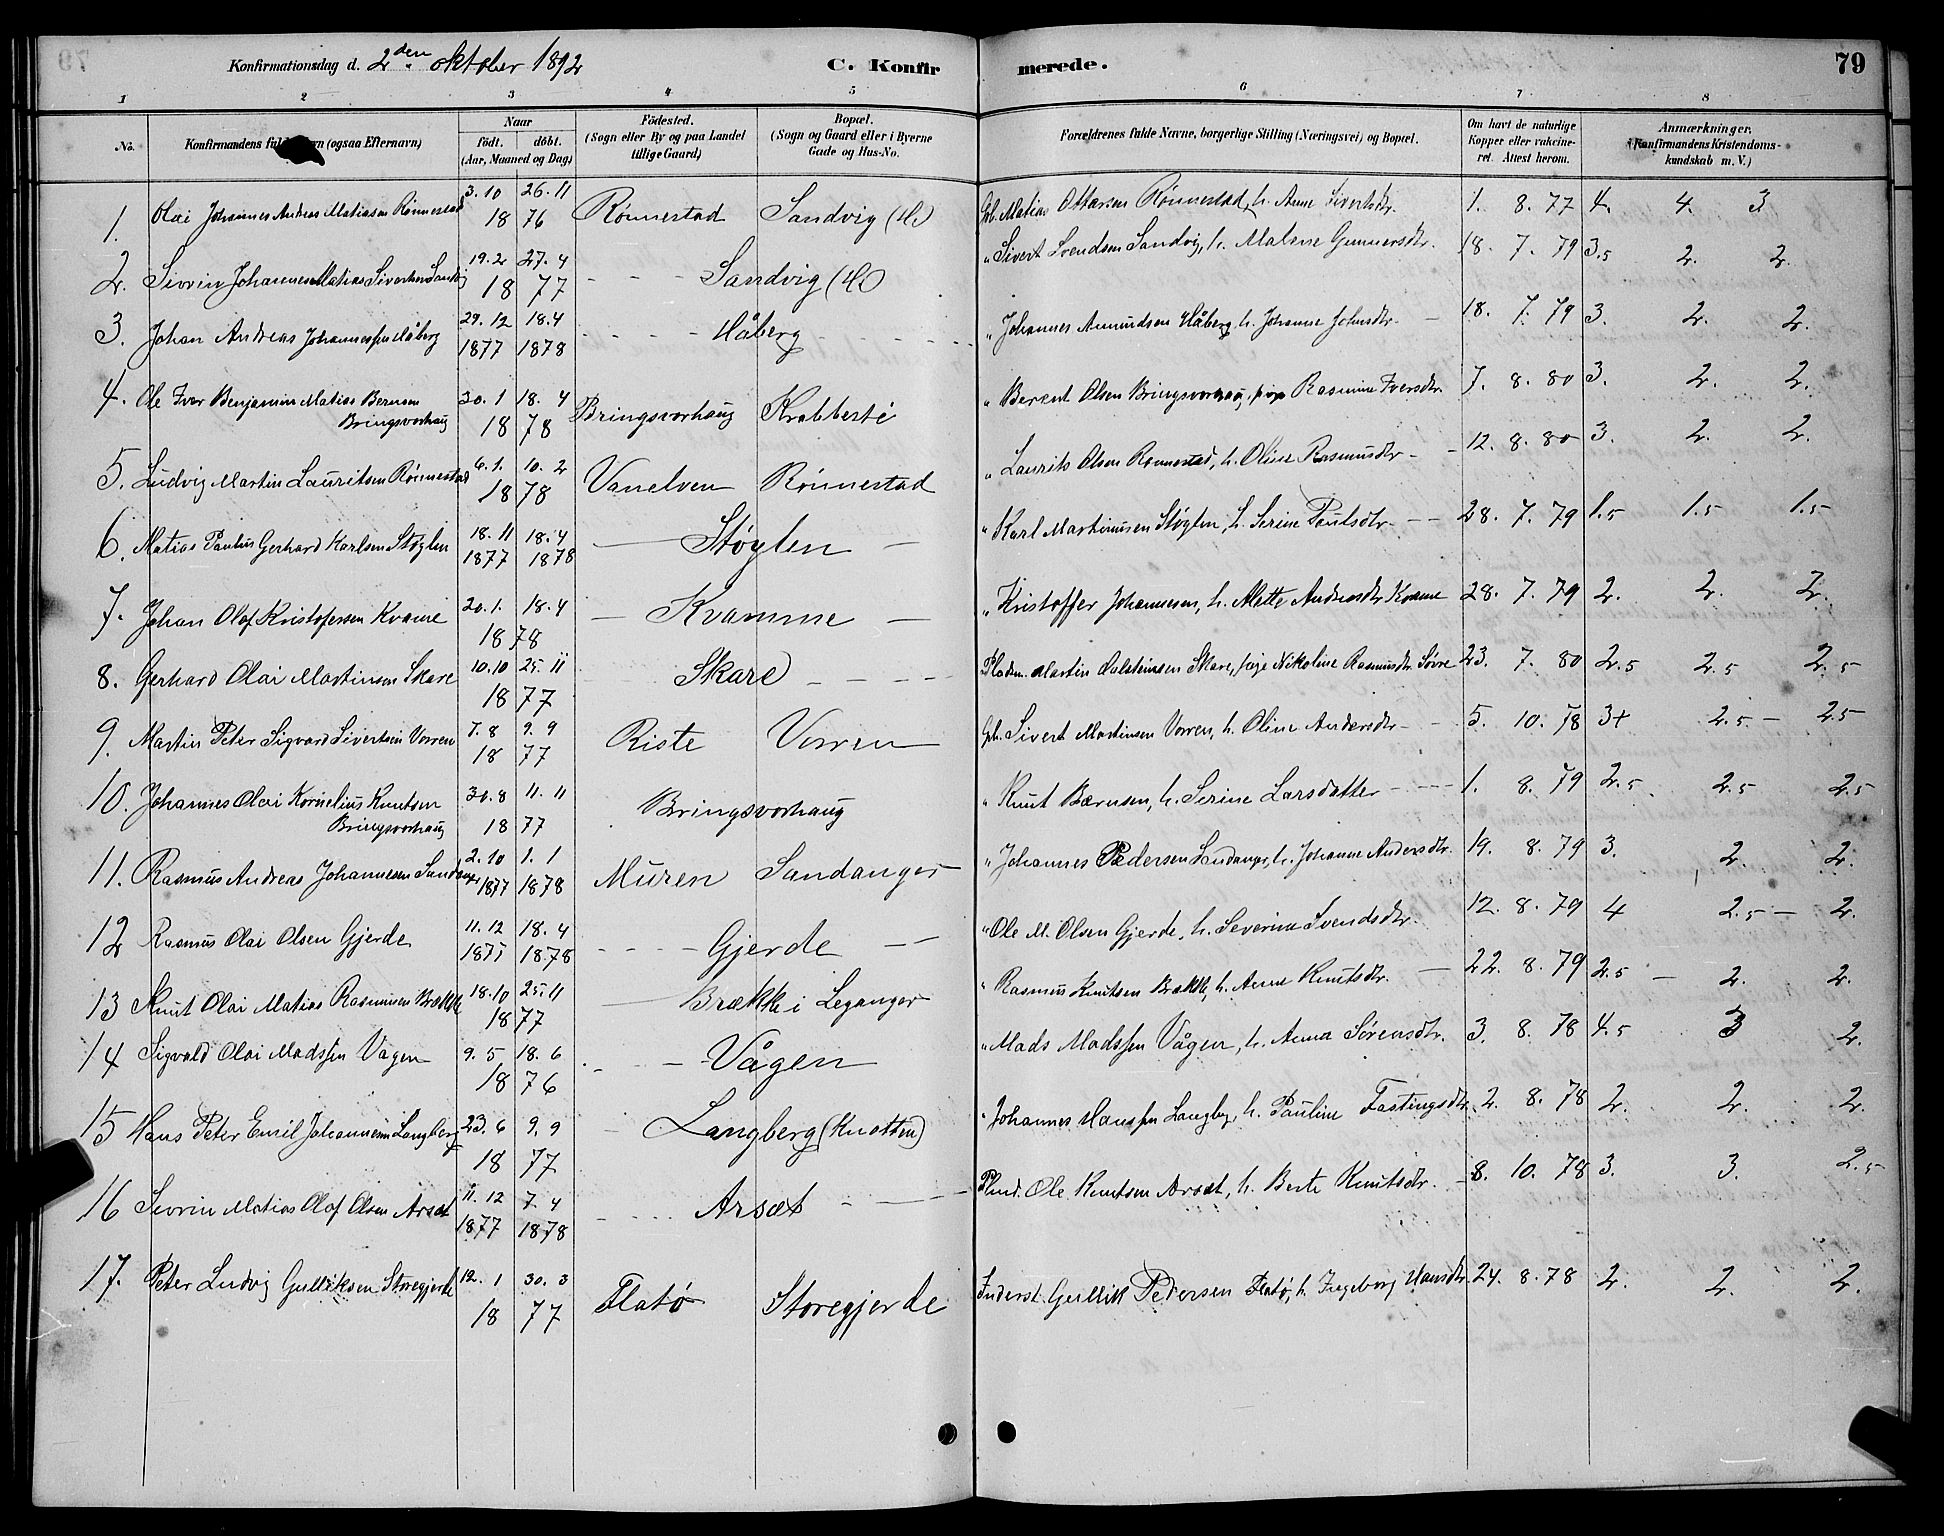 Konfirmationsdag d. 2den oktober 1892 C. Konfirmerede. 79
1 2 3 4 5 6 7 8
No. Konfirmandens fulde Navn (ogsaa Efternavn) Naar født. døbt. (Aar, Maaned og Dag) Fødested. (Sogn eller By og paa Landet tillige Gaard) Bopæl. (Sogn og Gaard eller i Byerne Gade og Hus-No. Forældrenes fulde Navne, borgerlige Stilling (Næringsvei) og Bopæl. Om havt de naturlige Kopper eller vakcineret. Attest herom. Anmærkninger. (Konfirmandens Kristendomskundskab m. V.)
1. Olai Johannes Andreas Matiasen Rønnestad 3.10 26.11 1876 Rønnestad Sandvig (H) Gb. Matias Ottarsen Rønnestad, h. Anne Sivertsdtr. 1. 8. 77 4. 4. 3
2. Sivrin Johannes Matias Sivertsen Sandvig 19.2 27.4 1877 - - - Sandvig (H) " Sivert Svendsen Sandvig, h. Malene Gunnersdtr. 18. 7. 79 3.5 2. 2.
3. Johan Andreas Johannessen Håberg 29.12 18.4 1877 1878 - - - Håberg " Johannes Amundsen Håberg, h. Johanne Johnsdtr. 18. 7. 79 3. 2. 2.
4. Ole Iver Benjamin Matias Bernsen Bringsvorhaug 20.1 18.4 1878 Bringsvorhaug Krabbestė " Berent Olsen Bringsvorhaug, pige Rasmine Iversdtr. 7. 8. 80 3. 2. 2.
5. Ludvig Martin Lauritsen Rønnestad 6.1. 10.2 1878 Vanelven Rønnestad " Laurits Olsen Rønnestad, h. Oline Rasmusdtr - 12. 8. 80 3. 2. 2.
6. Matias Paulus Gerhard Karlsen Støylen 18.11 18.4 1877 1878 - Støylen - " Karl Martinusen Støylen, h. Serine Paulsdtr. - 28. 7. 79 1.5 1.5 1.5
7. Johan Olof Kristofersen Kvame 20.1. 18.4 1878 - Kvamme - " Kristoffer Johannesen, h. Mette Andersdtr Kvame 28. 7. 79 2. 2. 2.
8. Gerhard Olai Martinsen Skare 10.10 25.11 1877 Skare - - - Pladsm. Martin Dalsteinsen Skare, pige Nikoline Rasmusdtr Sørve 23. 7. 80 2.5 2.5 2.5
9. Martin Peter Sigvard Sivertsen Vorren 7.8 9.9 1877 Riste Vorren Gb. Sivert Martinsen Vorren, h. Oline Andersdtr - 5. 10. 78 3+ 2.5 - 2.5
10. Johannes Olai Kornelius Knutsen Bringsvorhaug 30.8 11.11 1877 Bringsvorhaug " Knut Bærnsen, h. Serine Larsdatter - - - 1. 8. 79 2.5 2.5 2.5
11. Rasmus Andreas Johannesen Sandanger 2.10 1.1 1877 1878 Muren Sandanger " Johannes Pedersen Sandanger, h. Johanne Andersdtr. 19. 8. 79 3. 2. 2.
12 Rasmus Olai Olsen Gjerde 11.12 18.4 1877 1878 - - - Gjerde - - " Ole M. Olsen Gjerde, h. Severine Svendsdtr. 12. 8. 79 4 2.5 - 2.
13 Knut Olai Matias Rasmusen Brække 18.10 25.11 1877 Brække i Leganger " Rasmus Knutsen Brække, h. Anne Knutsdtr. - 22. 8. 79 2.5 - 2. 2.
14 Sigvald Olai Madssen Vagen 9.5 18.6 1876 - - Vågen " Mads Madssen Vågen, h. Anna Sørensdtr. 3. 8. 78 4.5 3 2.
15 Hans Peter Emil Johannesen Langberg 23.6 9.9 1877 - Langberg (Knotten) " Johannes Hanssen Langberg, h. Pauline Fastingsdtr. 2. 8. 78 2. 2. 2.
16 Sevrin Matias Olof Olsen Arsæt 11.12 7.4 1877 1878 - - Arsæt - - Plmd. Ole Knutsen Arsæt, h. Berte Knutsdtr. - 8. 10. 78 3. 3. 2.5
17. Peter Ludvig Gulliksen Storegjerde 12.1 30.3 1877 Flatø Storegjerde Inderst Gullik Pedersen Flatø, h. Ingeborg Hansdtr. 24. 8. 78 2. 2. 2.